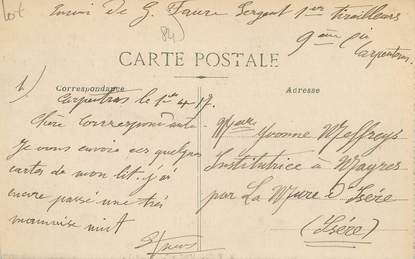 Envoi De G. Faure Sergent 1er Tirailleurs
9ème Cie
Carpentras
CARTE POSTALE
Correspondance
Adresse
Carpentras le 1er 4 17.
Chère Correspondante.
Je vous envoie ces quelques
cartes de mon lit. j'ai
encore passé une très
mauvaise nuit
Melle Yvonne Meffreys
Institutrice à Mayres
par La Mure d'Isère
(Isère)